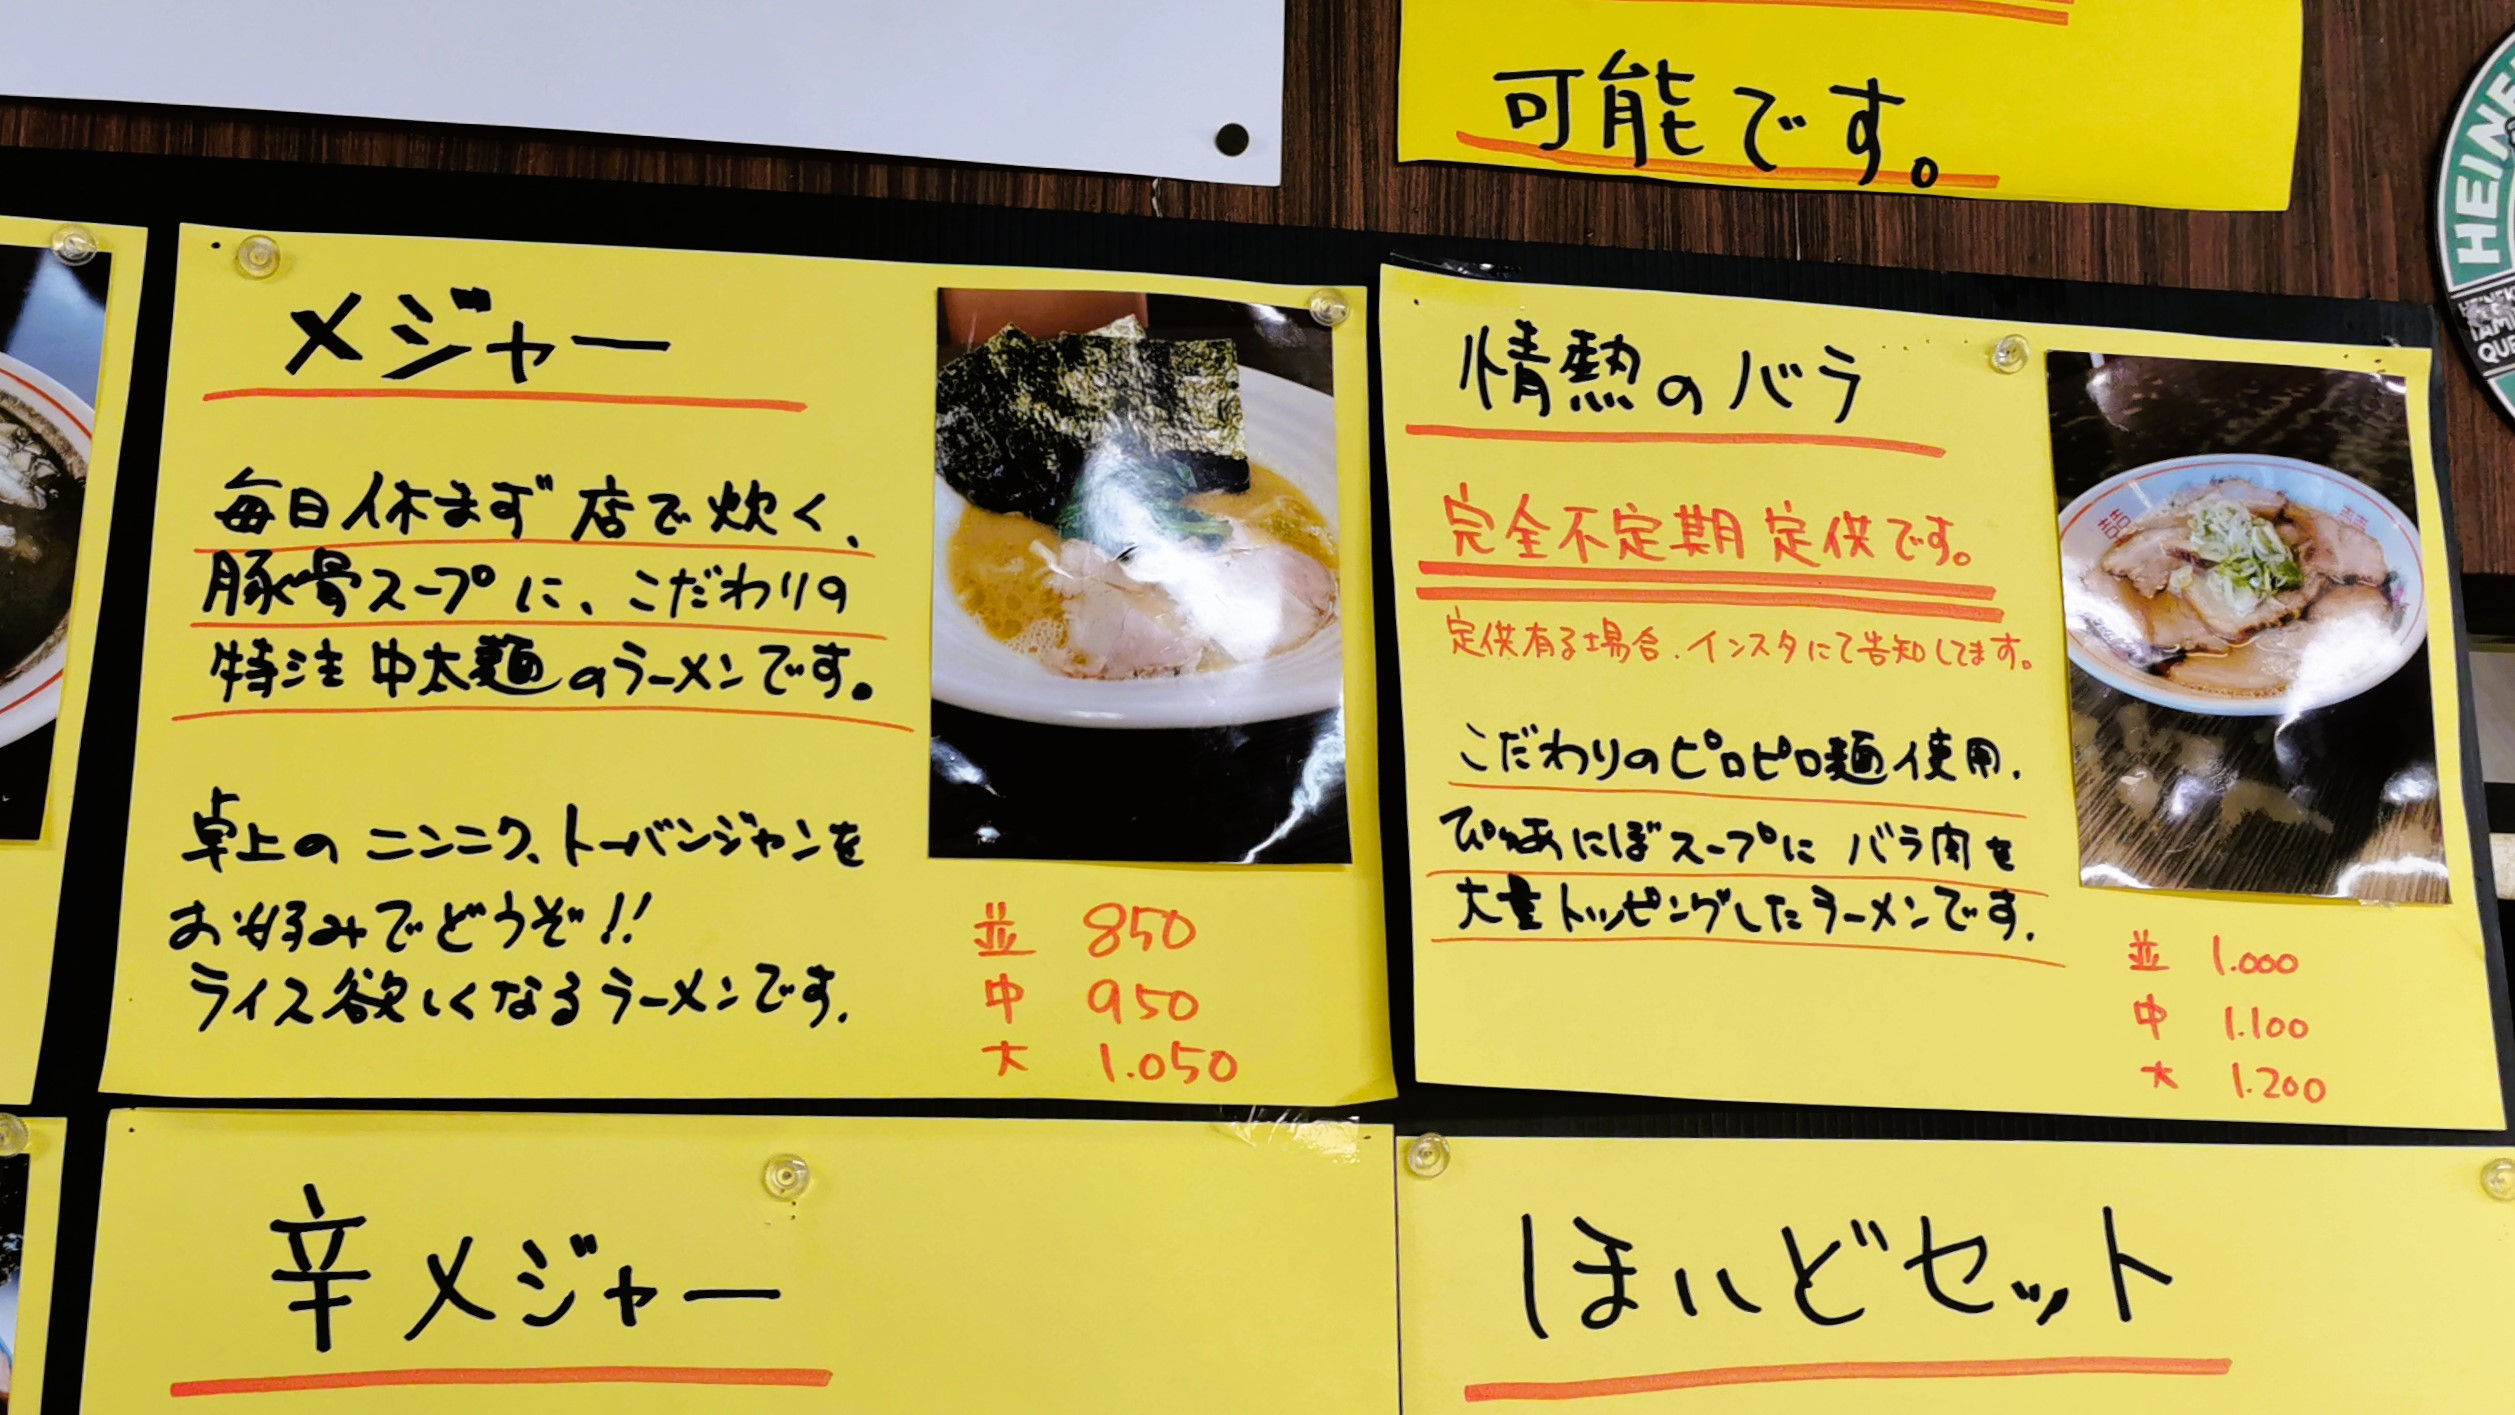 可能です。
HEINE
メジャー
毎日休まず店で炊く、
豚骨スープに、こだわりの
特注中太麺のラーメンです。
卓上のニンニク、トーバンジャンを
お好みでどうぞ!!
ライス欲しくなるラーメンです.
並 850
中 950
大 1.050
情熱のバラ
完全不定期定供です。
定供有る場合.インスタにて告知してます。
こだわりのピロピロ麺使用.
ぴゅあにぼスープにバラ肉を
大量トッピングしたラーメンです.
並 1.000
中 1.100
大 1.200
辛メジャー
ほいどセット